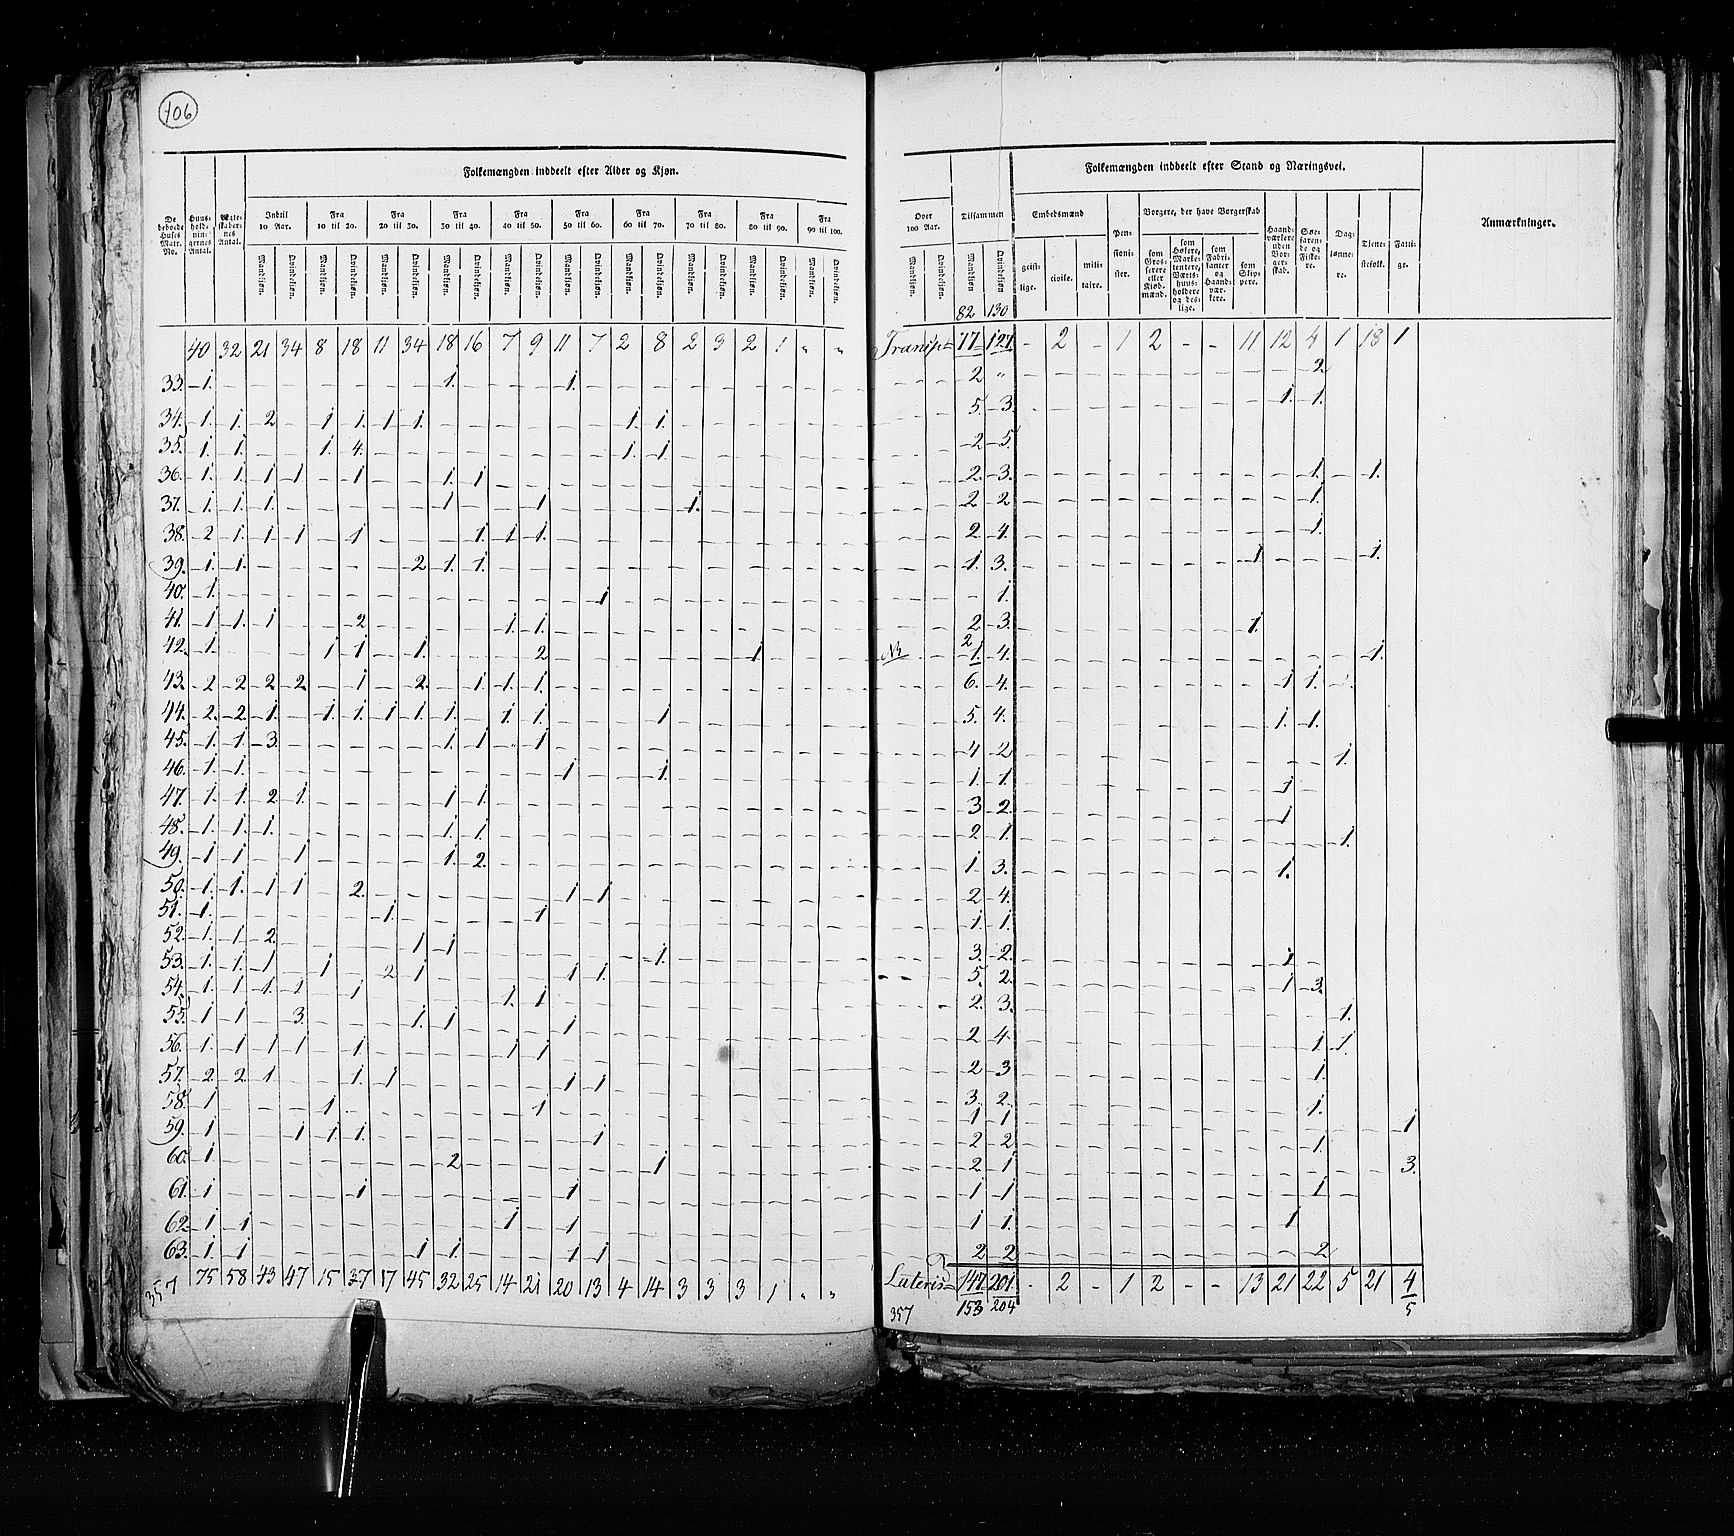 106
Folkemængden inddeelt efter Alder og Kjøn.
De beboede Huses Matr. No.
Huusholdningernes Antal.
Ægteskabernes Antal.
Indtil 10 Aar.
Fra 10 til 20.
Fra 20 til 30.
Fra 30 til 40.
Fra 40 til 50.
Fra 50 til 60.
Fra 60 til 70.
Fra 70 til 80.
Fra 80 til 90.
Fra 90 til 100.
Mandkiøn. Qvindekiøn. Mandkiøn. Qvindekiøn. Mandkiøn. Qvindekiøn. Mandkiøn. Qvindekiøn. Mandkiøn. Qvindekiøn. Mandkiøn. Qvindekiøn. Mandkiøn. Qvindekiøn. Mandkiøn. Qvindekiøn. Mandkiøn. Qvindekiøn. Mandkiøn. Qvindekiøn.
40 32 21 34 8 18 11 34 18 16 7 9 11 7 2 8 2 3 2 1 " "
33. 1. 1. 1.
34. 1. 1. 2 1 1. 1 1. 1. 1.
35. 1. 1. 1. 4. 1. 1.
36. 1. 1. 1 1 1 1. 1.
37. 1. 1. 1. 1 1 1.
38. 2 1. 1 1 1 1. 1 1.
39. 1. 1. 2 1. 1.
40. 1. 1
41. 1 1. 1 2 1. 1.
42. 1. 1 1 1. 2 1
43. 2 2 2 2 1 2. 1 1. 1.
44. 2. 2. 1. 1. 1. 1 1. 1. 1. 1. 1
45. 1. 1. 3. 1. 1 1
46. 1. 1. 1 1.
47. 1. 1. 2 1. 1 1.
48. 1. 1. 1. 1. 1.
49. 1 1. 1 1. 2.
50. 1. 1. 1 1 2. 1 1.
51. 1. 1. 1
52. 1. 1 2. 1 1. 1.
53. 1. 1. 1 1 2 1 1 1.
54. 1. 1 1. 1 1 1. 1
55. 1 1 3. 1. 1 1
56. 1. 1 1 1 1 1 1
57. 2 2 1 1. 1 1 1
58. 1 1 1
59. 1 1 1 1. 1
60. 1. 2 1
61 1 1 1
62. 1 1 1 1
63. 1. 1 1 1. 1 1
75 58 43 47 15 37 17 45 32 25 14 21 20 13 4 14 3 3 3 1 " "
357
Folkemængden inddeelt efter Stand og Næringsvei.
Anmærkninger.
Over 100 Aar.
Mandkiøn. Qvindekiøn.
Tilsammen
Mandkiøn Qvindekiøn
82 130
Embedsmænd
geistlige. civile. militaire.
Pensionister.
Borgere, der have Borgerskab
som Grosserere eller Kiøbmænd.
som Høkere, Marketentere, Værtshuusholdere og deslige.
som Fabrikanter og Haandværkere.
som Skippere.
Haandværkere uden Borgerskab.
Søefarende og Fiskere.
Daglønnere.
Tienestefolk.
Fattige.
Transpt 77 121 - 2 - 1 2 - - 11 12 4 1 18 1
2 " 2
5. 3. 1. 1.
2 5
2. 3. 1. 1.
2 2 1.
2 4. 1.
1. 3. 1 1.
1.
2 3. 1.
NB 2 1. 4. 1.
6. 4. 1 1.
5. 4. 1. 1.
4 2 1.
1. 1. 1
3 2. 1
2 1. 1.
1. 3. 1.
2 4.
1. 1.
3. 2. 1
5. 2. 1 3.
2. 3. 1.
2 4 1 1.
2 3 1.
3. 2. 1.
1 1 1
2 2 1.
2 1 3.
1 1 1
1 1. 1
2 2 2
Lateris 147 201. - 2 - 1 2 - - 13 21 22 5 21 4
153 204 5
357